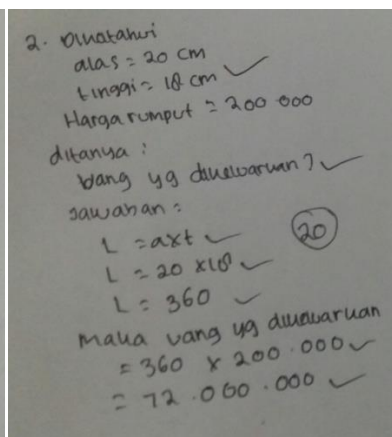 2. Diketahui
alas = 20 cm
tinggi = 18 cm ✓
Harga rumput = 200.000
ditanya :
uang yg dikeluarkan? ✓
Jawaban =
L = axt ✓
L = 20 x 18 ✓
L = 360 ✓
20
Maka uang yg dikeluarkan
= 360 x 200.000 ✓
= 72.000.000 ✓